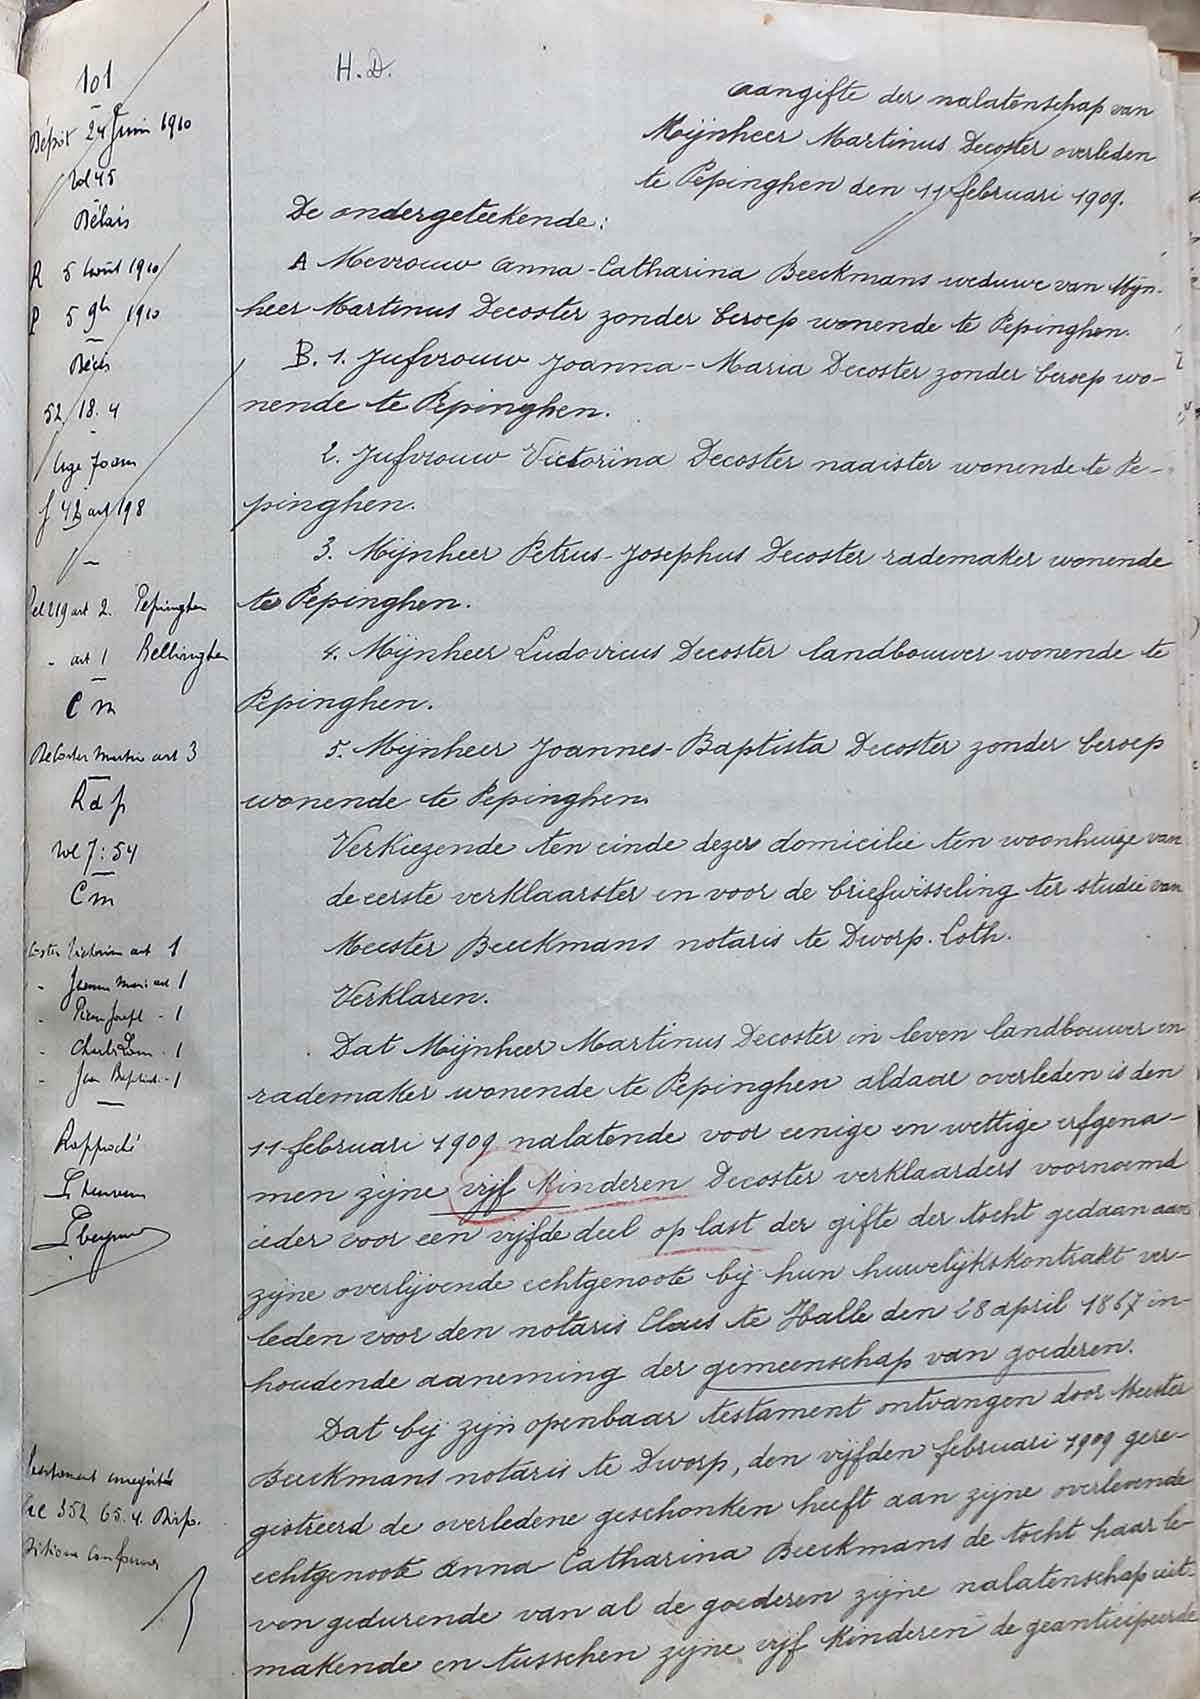 101
Dépôt 24 Juin 1910
vol 45
Délais
R 5 Août 1910
P 5 9bre 1910
Décès
52. 18. 4
age 70 ans
f 42 art 198
art 2. Pepinghen
- art 1 Bellinghen
C m
Decoster Martin art 3
R d p
vol 7: 54
C m
Victorine art 1
- Joanna Mari art 1
- Pierre Joseph - 1
- Charles Louis - 1
- Jean Baptiste - 1
Testament enregistré
352 65. 4. Disp.
H. D.
Aangifte der nalatenschap van
Mijnheer Martinus Decoster overleden
te Pepinghen den 11 februari 1909.
De ondergeteekende:
A Mevrouw Anna-Catharina Beeckmans weduwe van Mijn-
heer Martinus Decoster zonder beroep wonende te Pepinghen.
B. 1. Jufvrouw Joanna-Maria Decoster zonder beroep wo-
nende te Pepinghen.
2. Jufvrouw Victorina Decoster naaister wonende te Pe-
pinghen.
3. Mijnheer Petrus-Josephus Decoster rademaker wonende
te Pepinghen.
4. Mijnheer Ludovicus Decoster landbouwer wonende te
Pepinghen.
5. Mijnheer Joannes-Baptista Decoster zonder beroep
wonende te Pepinghen.
Verkiezende ten einde dezer domicilie ten woonhuize van
de eerste verklaarster en voor de briefwisseling ter studie van
Meester Beeckmans notaris te Dworp. Loth.
Verklaren.
Dat Mijnheer Martinus Decoster in leven landbouwer en
rademaker wonende te Pepinghen aldaar overleden is den
11 februari 1909 nalatende voor eenige en wettige erfgena-
men zijne vijf kinderen Decoster verklaarders voornoemd
ieder voor een vijfde deel op last der gifte der tocht gedaan aan
zijne overlijvende echtgenoote bij hun huwelijkskontrakt ver-
leden voor den notaris Claes te Halle den 28 april 1867 in-
houdende aaneming der gemeenschap van goederen.
Dat bij zijn openbaar testament ontvangen door Meester
Beeckmans notaris te Dworp, den vijfden februari 1909 gere-
gistreerd de overledene geschonken heeft aan zijne overlevende
echtgenoote Anna Catharina Beeckmans de tocht haar le-
ven gedurende van al de goederen zijne nalatenschap uit-
makende en tusschen zijne vijf kinderen de geanticipeerde